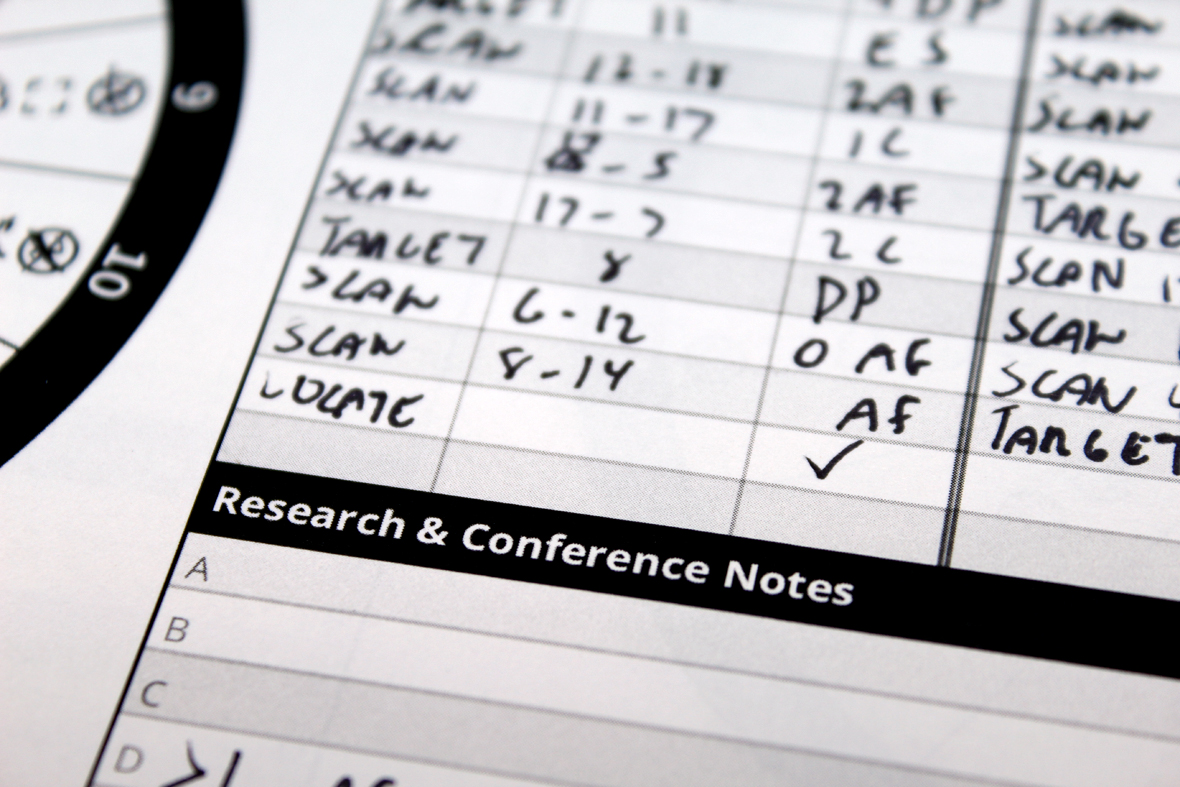 SCAN
TARGET 11 E S SCAN
SCAN 12-18 2AF SCAN
SCAN 11-17 1C SCAN
SCAN - 5 2AF TARGE
SCAN 17-7 2C SCAN
TARGET 8 DP SCAN
SCAN 6-12 0 AF SCAN
SCAN 8-14 AF TARGET
LOCATE ✓
9
10
Research & Conference Notes
A
B
C
D >